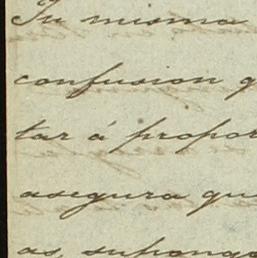 Tu misma
confusion q
tar á propor
asegura que
as, supongo